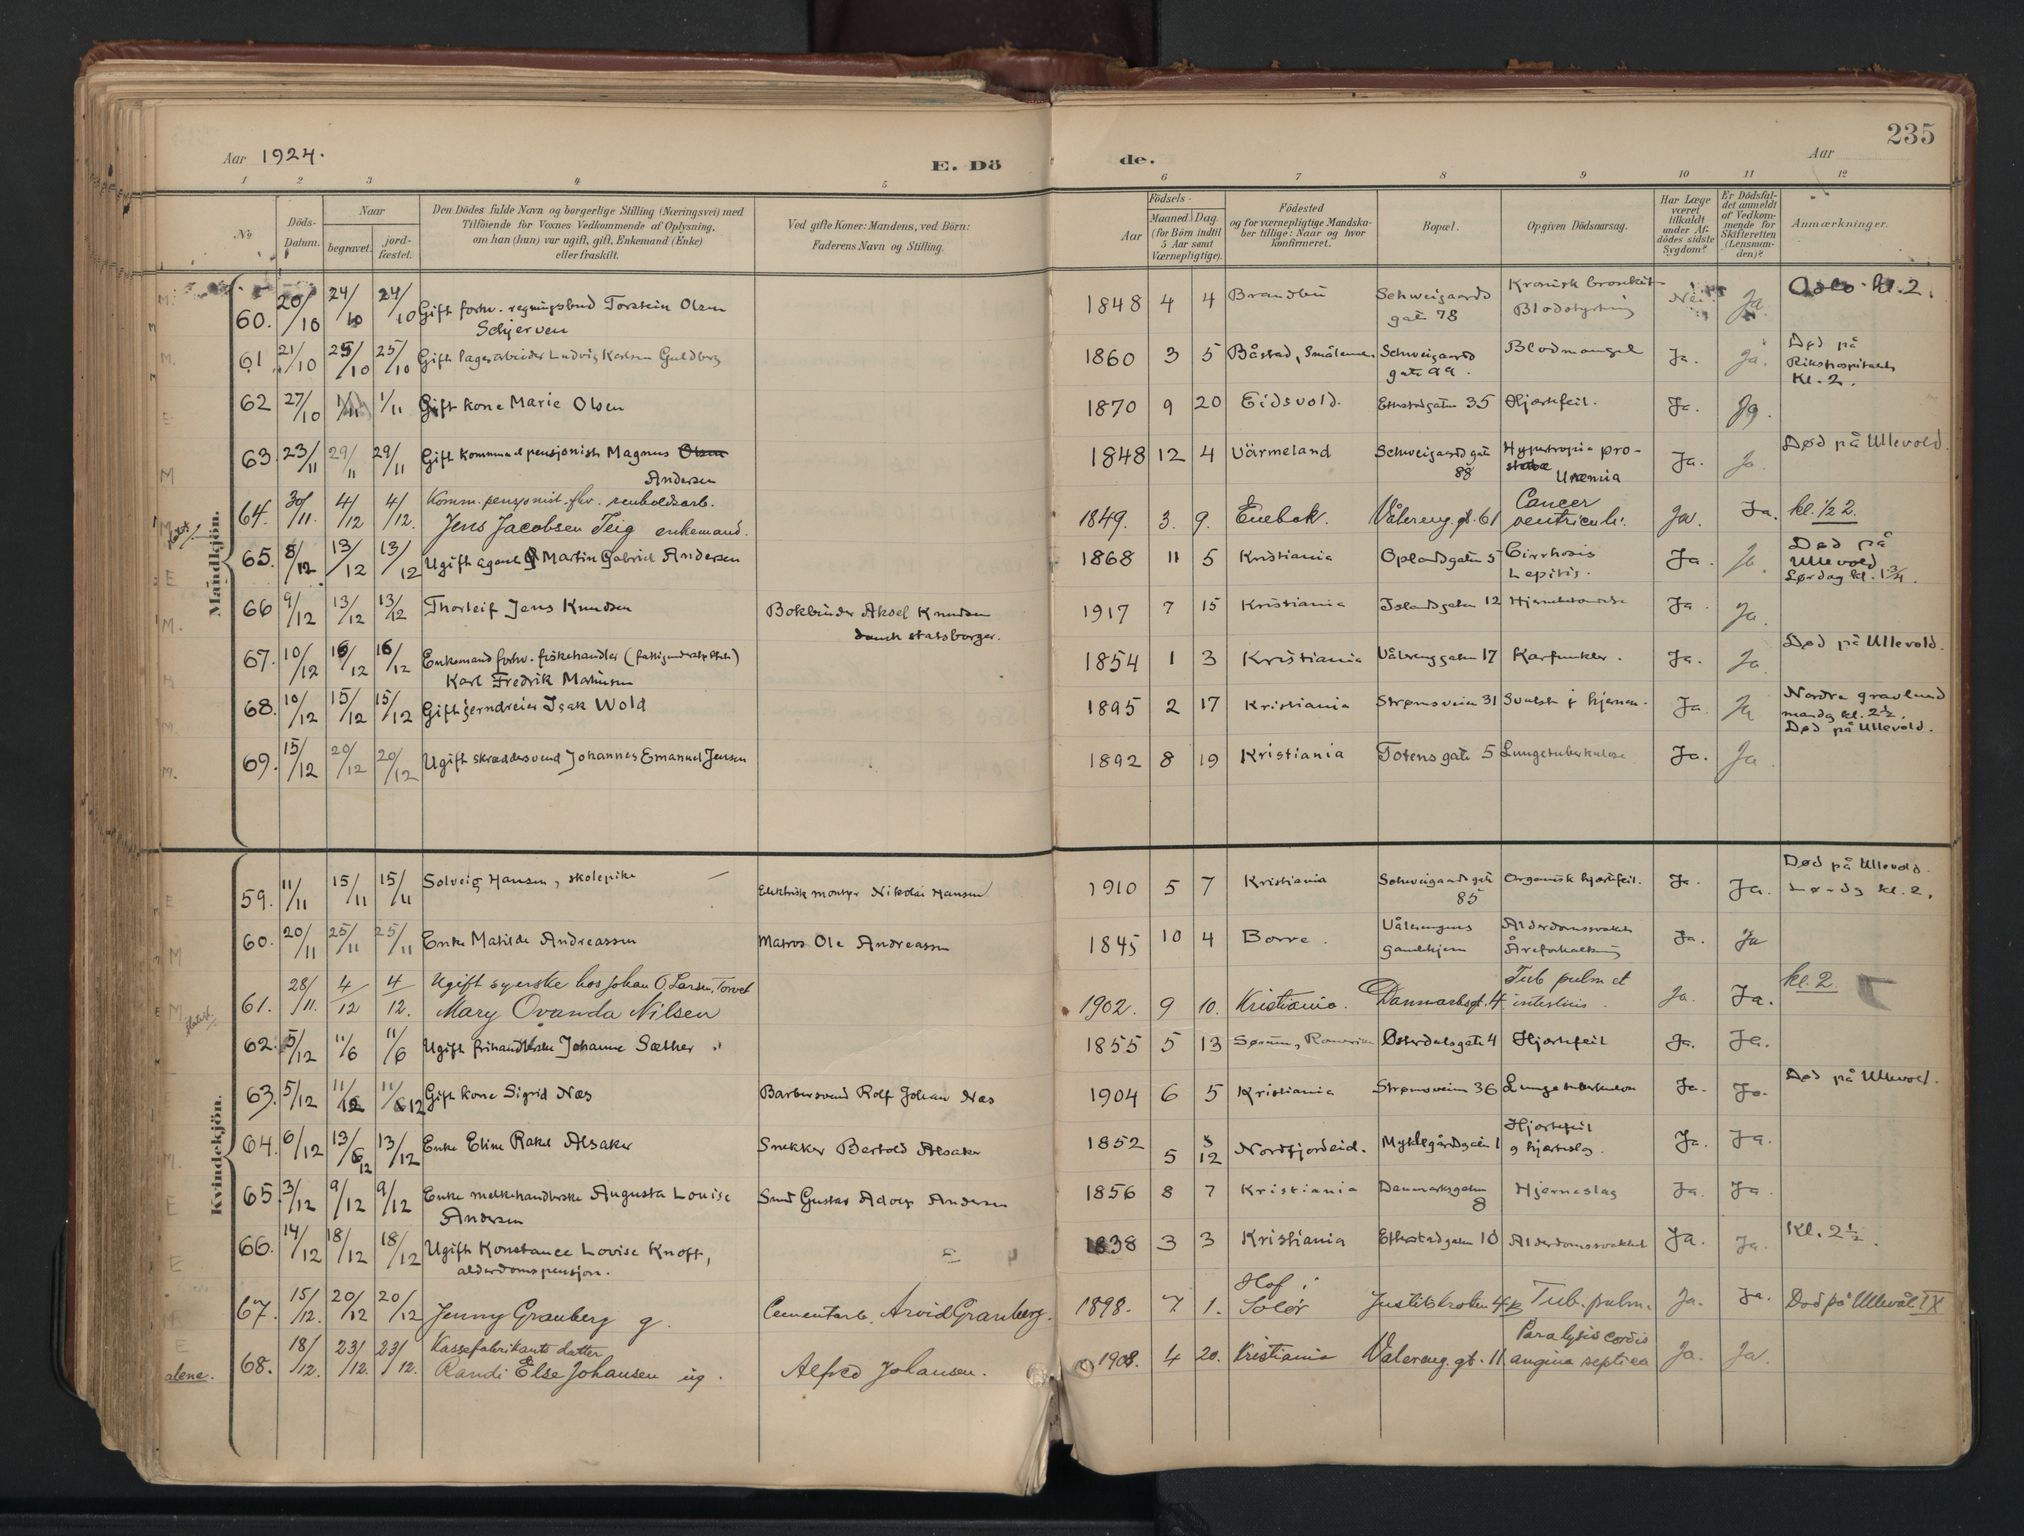 235
Aar 1924.
E. Dö
de.
Aar
1 2 3 4 5 6 7 8 9 10 11 12
№
Döds-Datum.
Naar
begravet. jord-fæstet.
Den Dödes fulde Navn og borgerlige Stilling (Næringsvei) med
Tilföiende for Voxnes Vedkommende af Oplysning,
om han (hun) var ugift, gift, Enkemand (Enke)
eller fraskilt.
Ved gifte Koner: Mandens, ved Börn:
Faderens Navn og Stilling.
Födsels-
Aar
Maaned Dag
(for Börn indtil
5 Aar samt
Værnepligtige).
Födested
og for værnepligtige Mandska-
ber tillige: Naar og hvor
konfirmeret.
Bopæl.
Opgiven Dödsaarsag.
Har Læge
været
tilkaldt
under Af-
dödes sidste
Sygdom?
Er Dödsfal-
det anmeldt
af Vedkom-
mende for
Skifteretten
(Lensman-
den)?
Anmærkninger.
Mandkjön.
60. 20/10 24/10 24/10 Gift forhv. regningsbud Torstein Olsen
Schjerven
1848 4 4 Brandbu Schweigaards
gate 78 Kronisk bronkit
Blodstyrtning Nei Ja Oslo kl. 2.
61 21/10 25/10 25/10 Gift lagerarbeider Ludvig Karlsen Guldberg
1860 3 5 Båstad, Smålenene Schweigaards
gate 99. Blodmangel Ja. Ja. Død på
Rikshospitalet
Kl. 2.
62 27/10 1/11 1/11 Gift kone Marie Olsen
1870 9 20 Eidsvold. Etterstadgaten 35 Hjertefeil. Ja. Ja.
63. 23/11 29/11 29/11 Gift kommunal pensjonist Magnus Olsen
Andersen
1848 12 4 Värmeland Schweigaardsgate
88 Hypertropia pro-
statae Uræmia Ja. Ja. Død på Ullevold.
64. 30/11. 4/12 4/12. Komm. pensjonist fhv. renholdsarb.
Jens Jacobsen Teig enkemand.
1849. 3. 9. Enebak. Våereng.gt. 61 Cancer
ventriculi. Ja. Ja. kl. 1/2 2.
65. 8/12 13/12 13/12 Ugift agent Martin Gabriel Andersen
1868 11 5 Kristiania Oplandgaten 5 Cirrhosis
hepitis. Ja. Ja. Død på
Ullevold
Lørdag kl. 1 3/4.
66 9/12 13/12 13/12 Thorleif Jens Knudsen Bokbinder Aksel Knudsen
dansk statsborger.
1917 7 15 Kristiania Islandsgaten 12 Ja. Ja.
67. 10/12 16/12 16/12 Enkemand forhv. fiskehandler
Karl Fredrik Mathisen
1854 1 3 Kristiania Vålerenggaten 17 Karfunkler. Ja. Ja. Død på Ullevold.
68. 10/12 15/12 15/12 Gift jerndreier Isak Wold
1895 2 17 Kristiania Strømsveien 31 Svulst i hjernen. Ja. Ja Nordre gravlund
mandag kl. 2 1/2.
Død på Ullevold.
69. 15/12 20/12 20/12 Ugift skræddersvend Johannes Emanuel Jensen
1892 8 19 Kristiania Totensgate 5 Lungetuberkulose Ja. Ja
Kvindekjön.
59. 11/11 15/11 15/11 Solveig Hansen, skolepike Elektrisk montør Nikolai Hansen
1910 5 7 Kristiania Schweigaardsgate
85 Organisk hjertefeil. Ja. Ja. Død på Ullevold.
Lørdag kl. 2.
60. 20/11 25/11 25/11 Enke Matilde Andreassen Matros Ole Andreassen
1845 10 4 Borre. Vålerengens
gamlehjem Alderdomssvakhet
Åreforkalkning Ja. Ja
61. 28/11. 4/12 4/12. Ugift syerske hos Johan O. Larsen, Torvet
Mary Ovanda Nilsen
1902. 9 10. Kristiania. Danmarksgt. 4. Tub pulm et
intestinis. Ja. Ja. kl. 2.
62. 5/12 11/6 11/6 Ugift frihandlerske Johanne Sæther
1855 5 13 Sørum, Romerike Østerdalsgate 4 Hjertefeil Ja. Ja.
63. 5/12 11/12 11/12 Gift kone Sigrid Næs Barbersvend Rolf Johan Næs
1904 6 5 Kristiania Strømsveien 36 Lungetuberkulose Ja. Ja. Død på Ullevold.
64. 6/12 13/12 13/12 Enke Eline Rakel Alsaker Snekker Bertold Alsaker
1852 5 12 Nordfjordeid. Myklegårdsgaten 1 Hjertefeil
og hjerteslag. Ja. Ja.
65. 3/12 9/12 9/12 Enke melkehandlerske Augusta Louise
Andersen Smed Gustav Adolf Andersen
1856 8 7 Kristiania Danmarksgaten
8 Hjerneslag Ja. Ja.
66. 14/12 18/12 18/12 Ugift Konstance Lovise Knoff,
alderdomspensjon.
1838 3 3 Kristiania Etterstadgaten 10 Alderdomssvakhet Ja. Ja. Kl. 2 1/2.
67. 15/12. 20/12 20/12 Jenny Granberg g. Cementarb. Arvid Granberg.
1898. 7 1. Hof i
Solør Justitskroken 4 Tub. pulm. Ja. Ja. Død på Ullevål IX
68. 18/12. 23/12. 23/12. Kassefabrikants datter
Randi Else Johansen ug. Alfred Johansen.
1908. 4 20. Kristiania Valereng.gt. 11 Paralysis cordis
angina septica Ja. Ja.
alene.